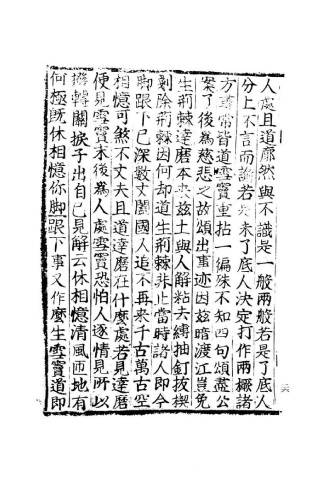 人處且道廓然與不識是一般兩般若是了底人
分上不言而諭若是未了底人決定打作兩橛諸
方尋常皆道雪竇重拈一徧殊不知四句頌盡公
案了後為慈悲之故頌出事迹因玆暗渡江豈免
生荆棘達磨本來玆土與人解粘去縛抽釘拔楔
剗除荆棘因何却道生荆棘非止當時諸人即今
脚跟下已深數丈闔國人追不再來千古萬古空
相憶可煞不丈夫且道達磨在什麼處若見達磨
便見雪竇末後為人處雪竇恐怕人逐情見所以
撥轉關捩子出自己見解云休相憶清風匝地有
何極既休相憶你脚跟下事又作麼生雪竇道即